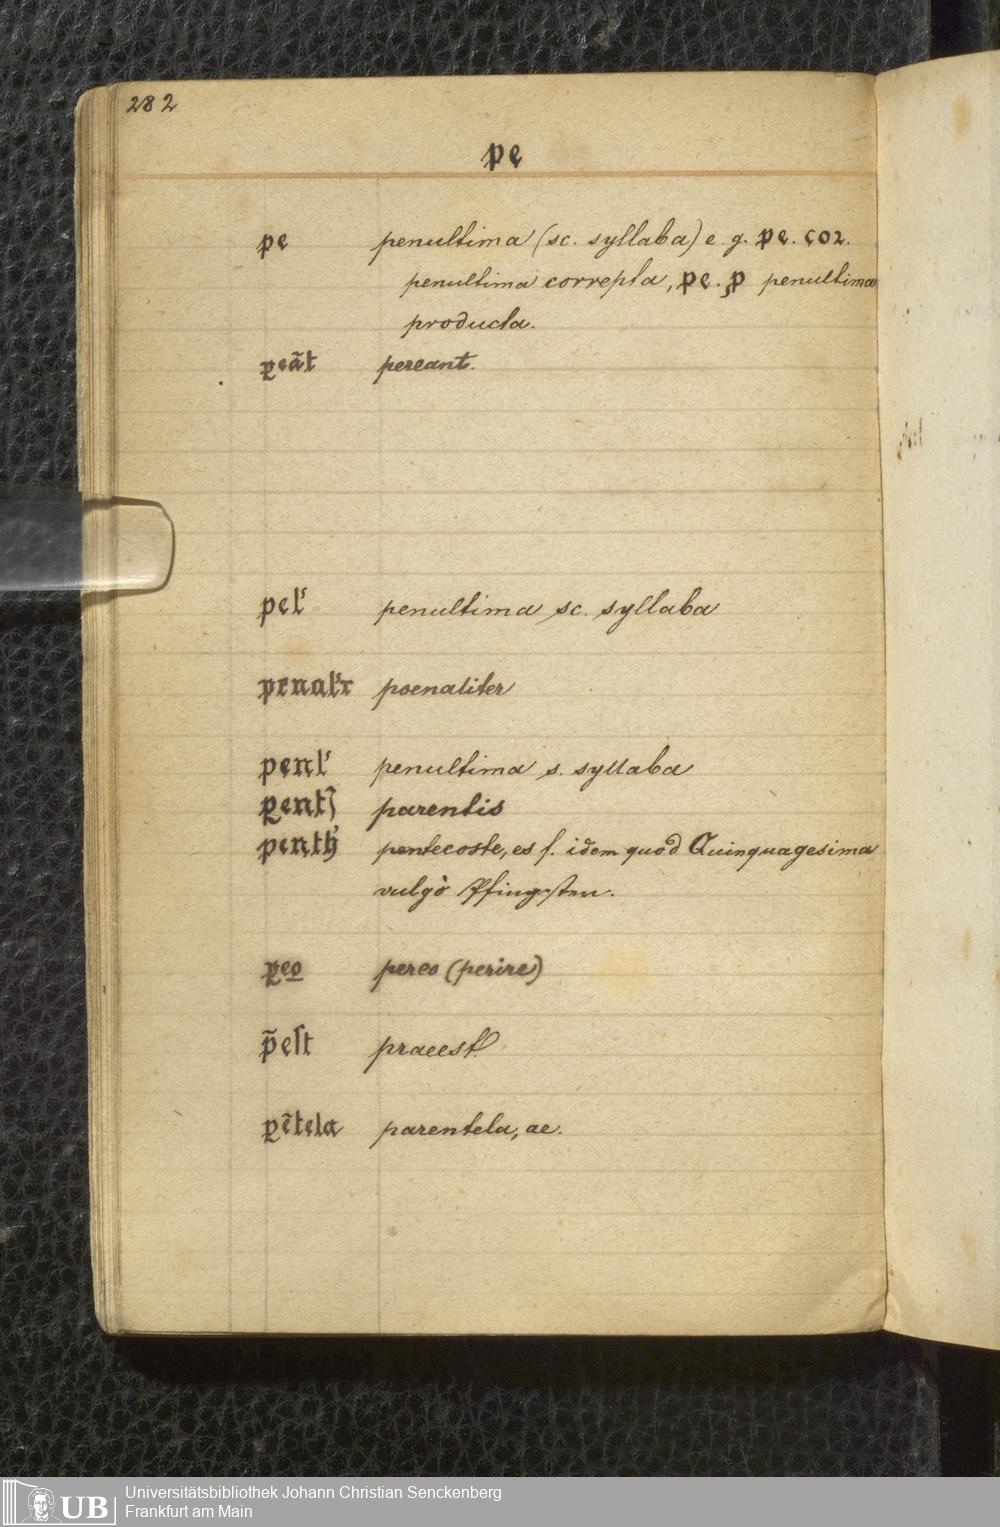 282
pe
pe penultima (sc. syllaba) e. g. pe. coꝛ.
penultima correpta, pe. ꝓ penultima
producta.
ꝑeāt pereant.
pel᷒ penultima sc. syllaba
penal᷒r poenaliter
penl᷒ penultima s. syllaba
ꝑentꝭ parentis
penth᷒ pentecoste, es f. idem quod Quinquagesima
vulgò Pfingsten.
ꝑeo pereo (perire)
p̄eſt praeest
ꝑētela parentela, ae.
UB
Universitätsbibliothek Johann Christian Senckenberg
Frankfurt am Main